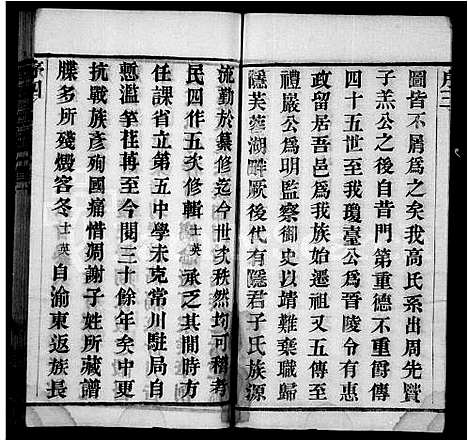 圖皆不屑爲之矣我高氏系出周先賢
子羔公之後自昔門第重德不重爵傳
四十五世至我瓊臺公爲晉陵令有惠
政留居吾邑爲我族始遷祖又五傳至
禮巖公爲明監察御史以靖難棄職歸
隱芙蓉湖畔厥後代有隱君子氏族源
流勤於纂修迄今世次秩然均可稽考
民四作五次修輯士英承乏其間方
任課省立第五中學未克常川駐局自
慙濫竽荏苒至今閱三十餘年矣中更
抗戰族彥殉國痛惜凋謝子姓所藏譜
牒多所殘燬客冬士英自渝東返族長
序四